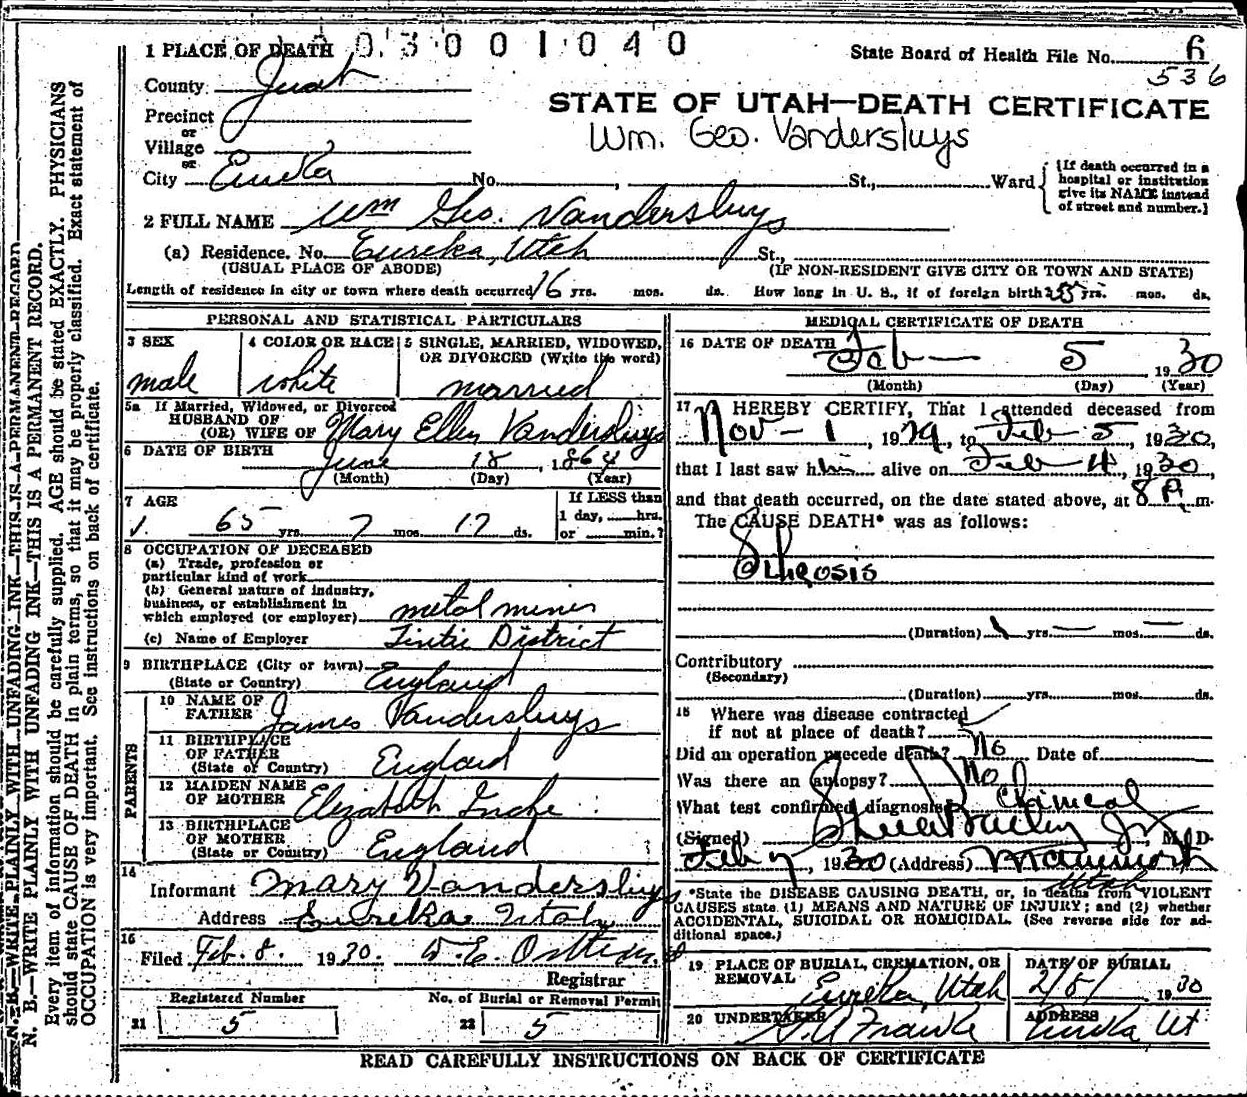 1 PLACE OF DEATH 0 3 0 0 1 0 4 0
State Board of Health File No. 6
536
County Juab
STATE OF UTAH—DEATH CERTIFICATE
Precinct
or
Village
Wm. Geo. Vandersluys
or
City Eureka No. , St., Ward
{If death occurred in a hospital or institution give its NAME instead of street and number.}
2 FULL NAME Wm Geo. Vandersluys
(a) Residence. No. Eureka, Utah St.,
(USUAL PLACE OF ABODE) (IF NON-RESIDENT GIVE CITY OR TOWN AND STATE)
Length of residence in city or town where death occurred 16 yrs. mos. ds. How long in U. S., if of foreign birth? yrs. mos. ds.
PERSONAL AND STATISTICAL PARTICULARS
3 SEX 4 COLOR OR RACE 5 SINGLE, MARRIED, WIDOWED,
OR DIVORCED (Write the word)
male white married
5a If Married, Widowed, or Divorced
HUSBAND OF
(OR) WIFE OF Mary Ellen Vandersluys
6 DATE OF BIRTH June 18, 1864
(Month) (Day) (Year)
7 AGE If LESS than
1 day, hrs.
65 yrs. 7 mos. 17 ds. or min.?
8 OCCUPATION OF DECEASED
(a) Trade, profession or
particular kind of work
(b) General nature of industry,
business, or establishment in
which employed (or employer) metal miner
(c) Name of Employer Tintic District
9 BIRTHPLACE (City or town)
(State or Country) England
PARENTS
10 NAME OF
FATHER James Vandersluys
11 BIRTHPLACE
OF FATHER
(State or Country) England
12 MAIDEN NAME
OF MOTHER Elizabeth
13 BIRTHPLACE
OF MOTHER
(State or Country) England
14
Informant Mary Vandersluys
Address Eureka Utah
15
Filed Feb. 8. 1930.
Registrar
Registered Number No. of Burial or Removal Permit
21 5 22 5
MEDICAL CERTIFICATE OF DEATH
16 DATE OF DEATH Feb — 5 1930
(Month) (Day) (Year)
17 I HEREBY CERTIFY, That I attended deceased from
Nov - 1, 1929, to Feb 5, 1930,
that I last saw him alive on Feb 4, 1930
and that death occurred, on the date stated above, at 8 A m.
The CAUSE DEATH* was as follows:
(Duration) 1 yrs. — mos. — ds.
Contributory
(Secondary)
(Duration) yrs. mos. ds.
18 Where was disease contracted
if not at place of death?
Did an operation precede death? No Date of
Was there an autopsy? No
What test confirmed diagnosis?
(Signed) Steele Bailey Jr, M. D.
Feb 7, 1930 (Address) Mammoth
Utah
*State the DISEASE CAUSING DEATH, or, in deaths from VIOLENT
CAUSES state (1) MEANS AND NATURE OF INJURY; and (2) whether
ACCIDENTAL, SUICIDAL OR HOMICIDAL. (See reverse side for additional space.)
19 PLACE OF BURIAL, CREMATION, OR
REMOVAL Eureka, Utah
DATE OF BURIAL
2/8/ 1930
20 UNDERTAKER Franke
ADDRESS
Eureka Ut
READ CAREFULLY INSTRUCTIONS ON BACK OF CERTIFICATE
N. B.—WRITE PLAINLY WITH UNFADING INK—THIS IS A PERMANENT RECORD.
N. B.—WRITE PLAINLY WITH UNFADING INK—THIS IS A PERMANENT RECORD.
Every item of information should be carefully supplied. AGE should be stated EXACTLY. PHYSICIANS
should state CAUSE OF DEATH in plain terms, so that it may be properly classified. Exact statement of
OCCUPATION is very important. See instructions on back of certificate.